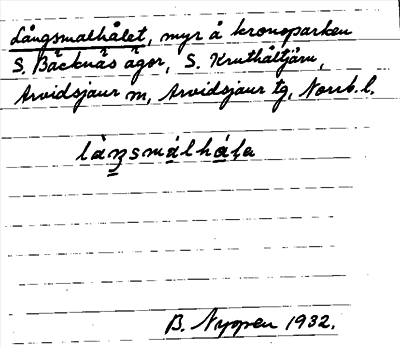 Långsmalhålet, myr å kronoparken
S. Bäcknäs ägor, S. Kruthåltjärn,
Arvidsjaur sn, Arvidsjaur tg, Norrb. l.
B. Nyppen 1932.